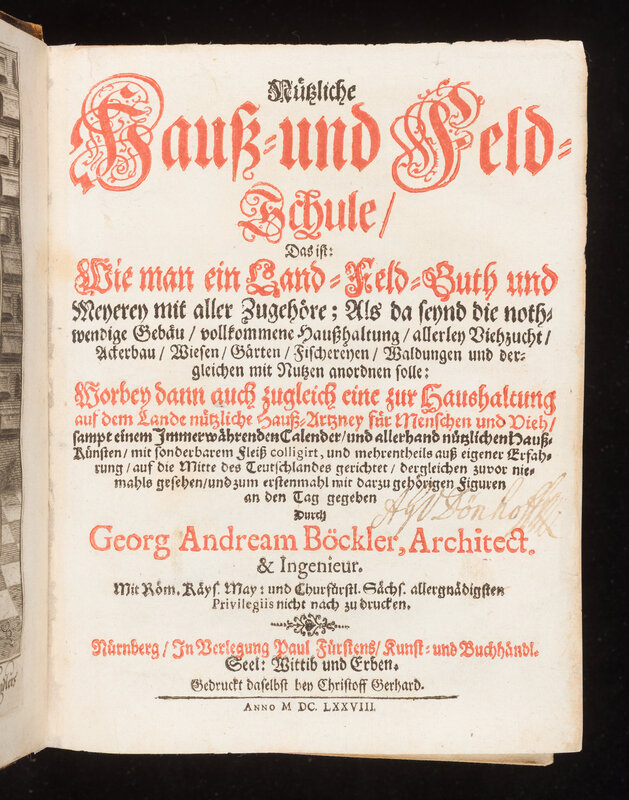 Nützliche
Hauß- und Feld-
Schule/
Das ist:
Wie man ein Land-Feld-Guth und
Meyerey mit aller Zugehöre; Als da seynd die noth-
wendige Gebäu / vollkommene Haußhaltung / allerley Viehzucht /
Ackerbau / Wiesen / Gärten / Fischereyen / Waldungen und der-
gleichen mit Nutzen anordnen solle:
Worbey dann auch zugleich eine zur Haushaltung
auf dem Lande nützliche Hauß-Artzney für Menschen und Vieh/
sampt einem Immerwährenden Calender/und allerhand nützlichen Hauß-
Künsten / mit sonderbarem Fleiß colligirt, und mehrentheils auß eigener Erfah-
rung / auf die Mitte des Teutschlandes gerichtet / dergleichen zuvor nie-
mahls gesehen/und zum erstenmahl mit darzu gehörigen Figuren
an den Tag gegeben
Durch
Dönhoff
Georg Andream Böckler, Architect.
& Ingenieur.
Mit Röm. Käys. May: und Churfürstl. Sächs. allergnädigsten
Privilegiis nicht nach zu drucken.
Nürnberg / In Verlegung Paul Fürstens/ Kunst- und Buchhändl.
Seel: Wittib und Erben.
Gedruckt daselbst bey Christoff Gerhard.
ANNO M DC. LXXVIII.